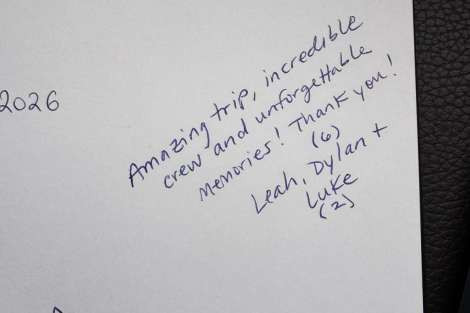 2026
Amazing trip, incredible
crew and unforgettable
memories! Thank you!
(6)
Leah, Dylan +
Luke
(2)